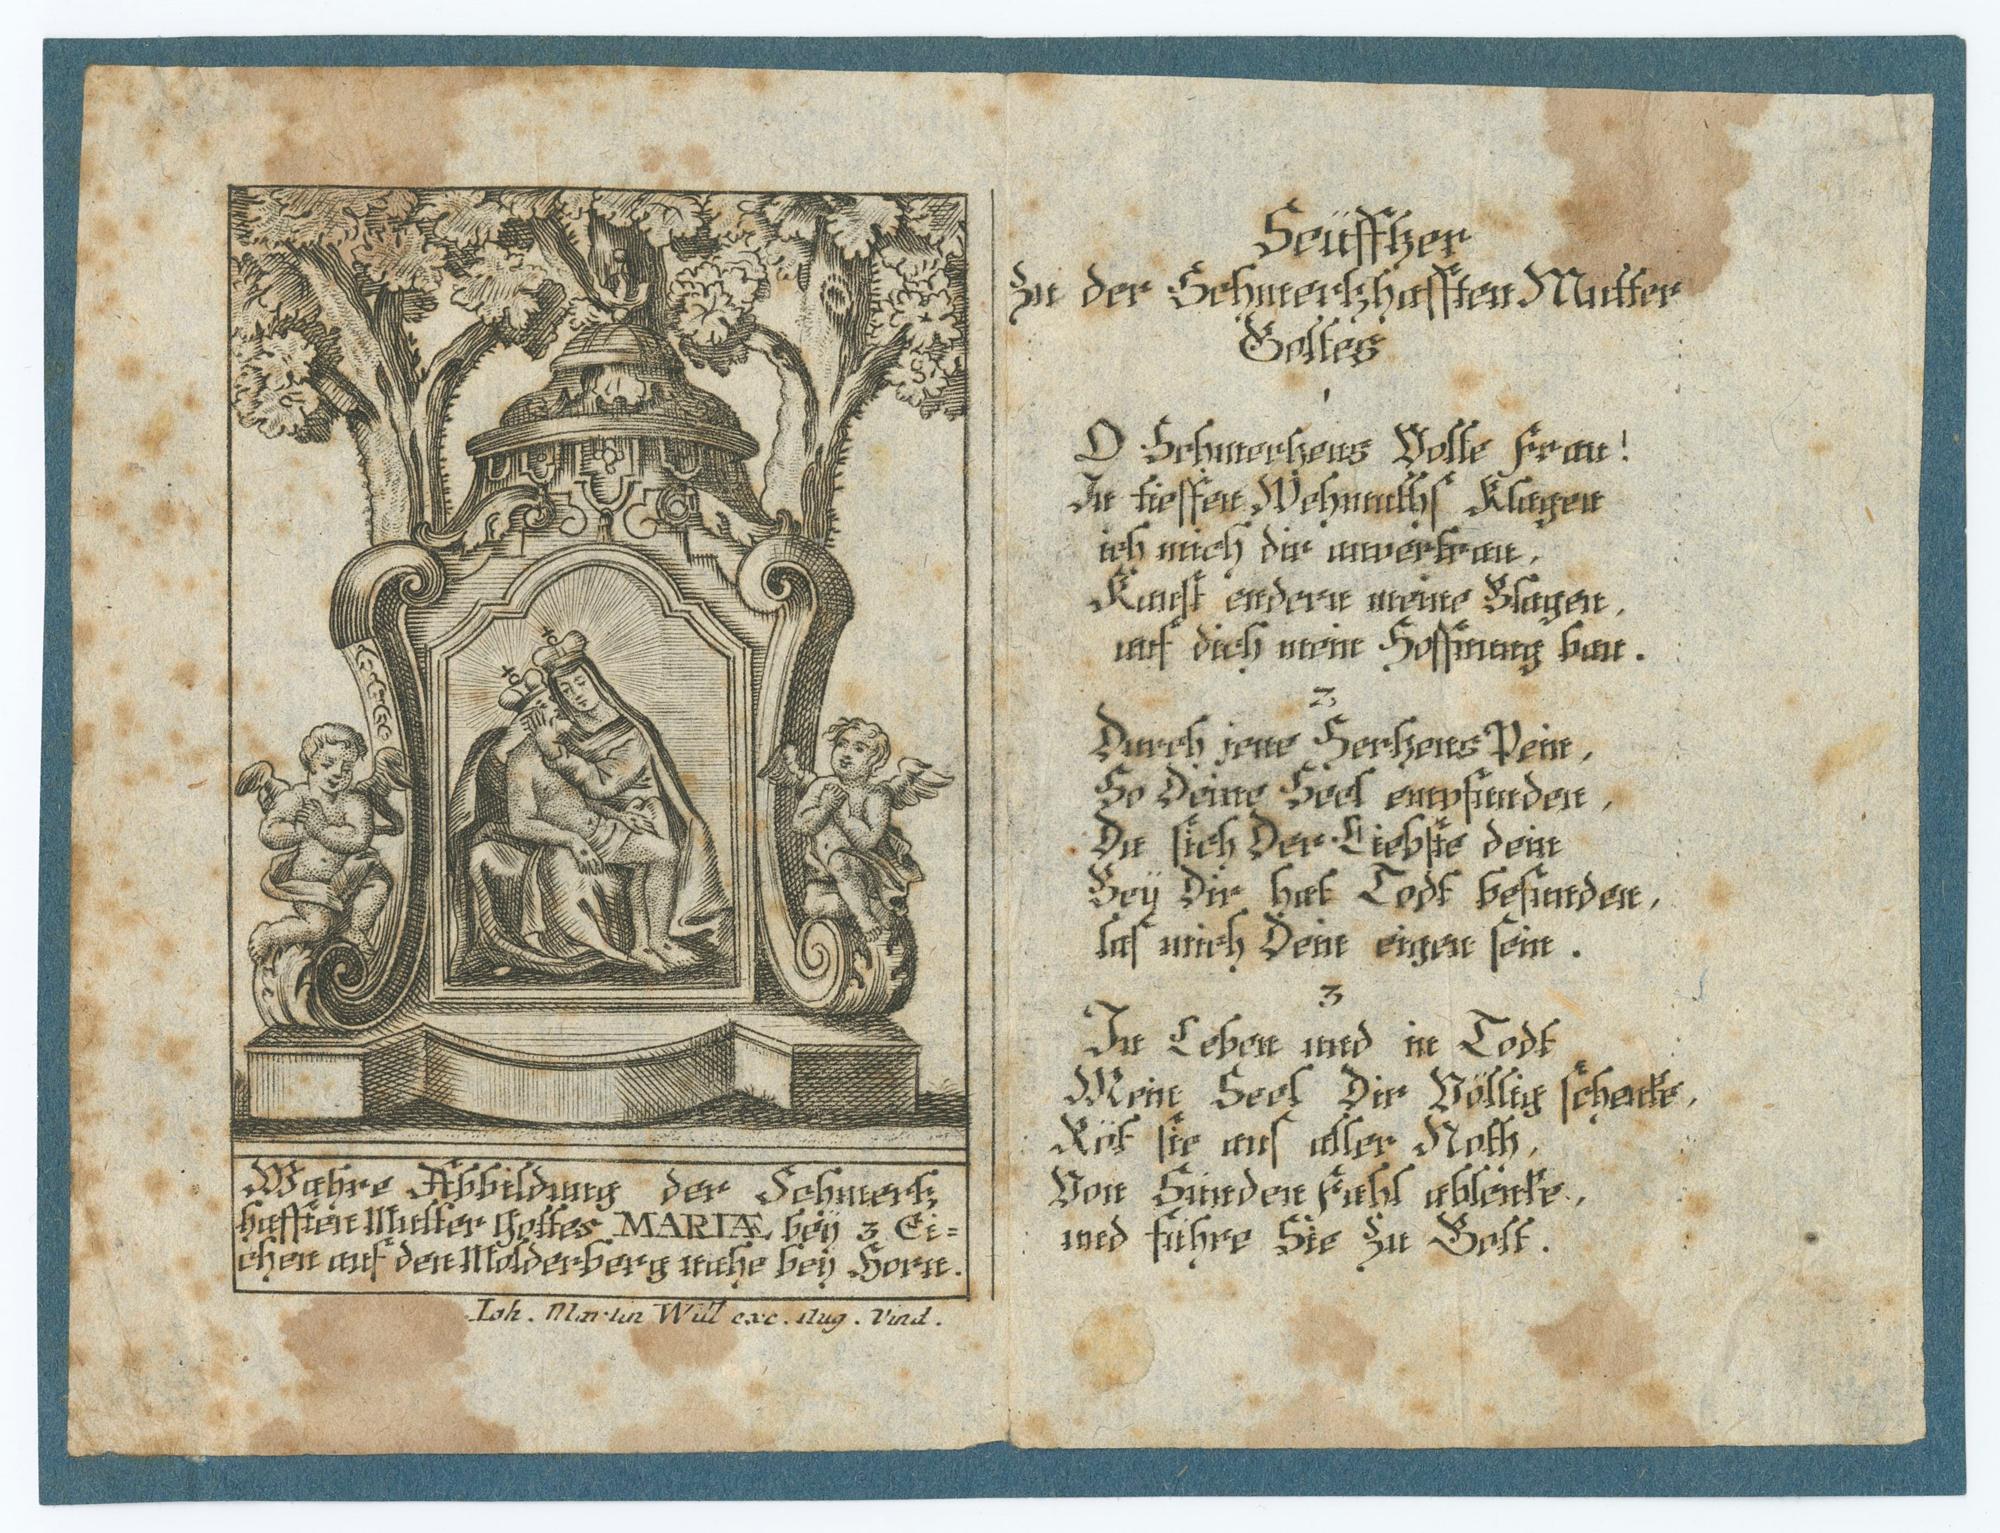 Wahre Abbildung der Schmertz
hafften Mutter Gottes MARIÆ beÿ 3 Ei=
chen auf den Molderberg nahe beÿ Horn.
Ioh. Martin Will exc. Aug. Vind.
Seüffzer
Zu der Schmertzhafften Mutter
Gottes
1
O Schmertzens Volle Frau!
In tieffen Wehmuths Klagen
ich mich dir anvertrau,
Kanst endern meine Blagen,
auf dich mein Hoffnung bau.
2
Durch jene Hertzens Pein,
So Deine Seel empfunden,
Da sich Der Liebste dein
Beÿ Dir hat Todt befunden,
las mich Dein eigen sein.
3
In Leben und in Todt
Mein Seel Dir Völlig schencke,
Röt sie aus aller Noth,
Von Sünden Fahl ablencke,
und führe Sie Zu Gott.